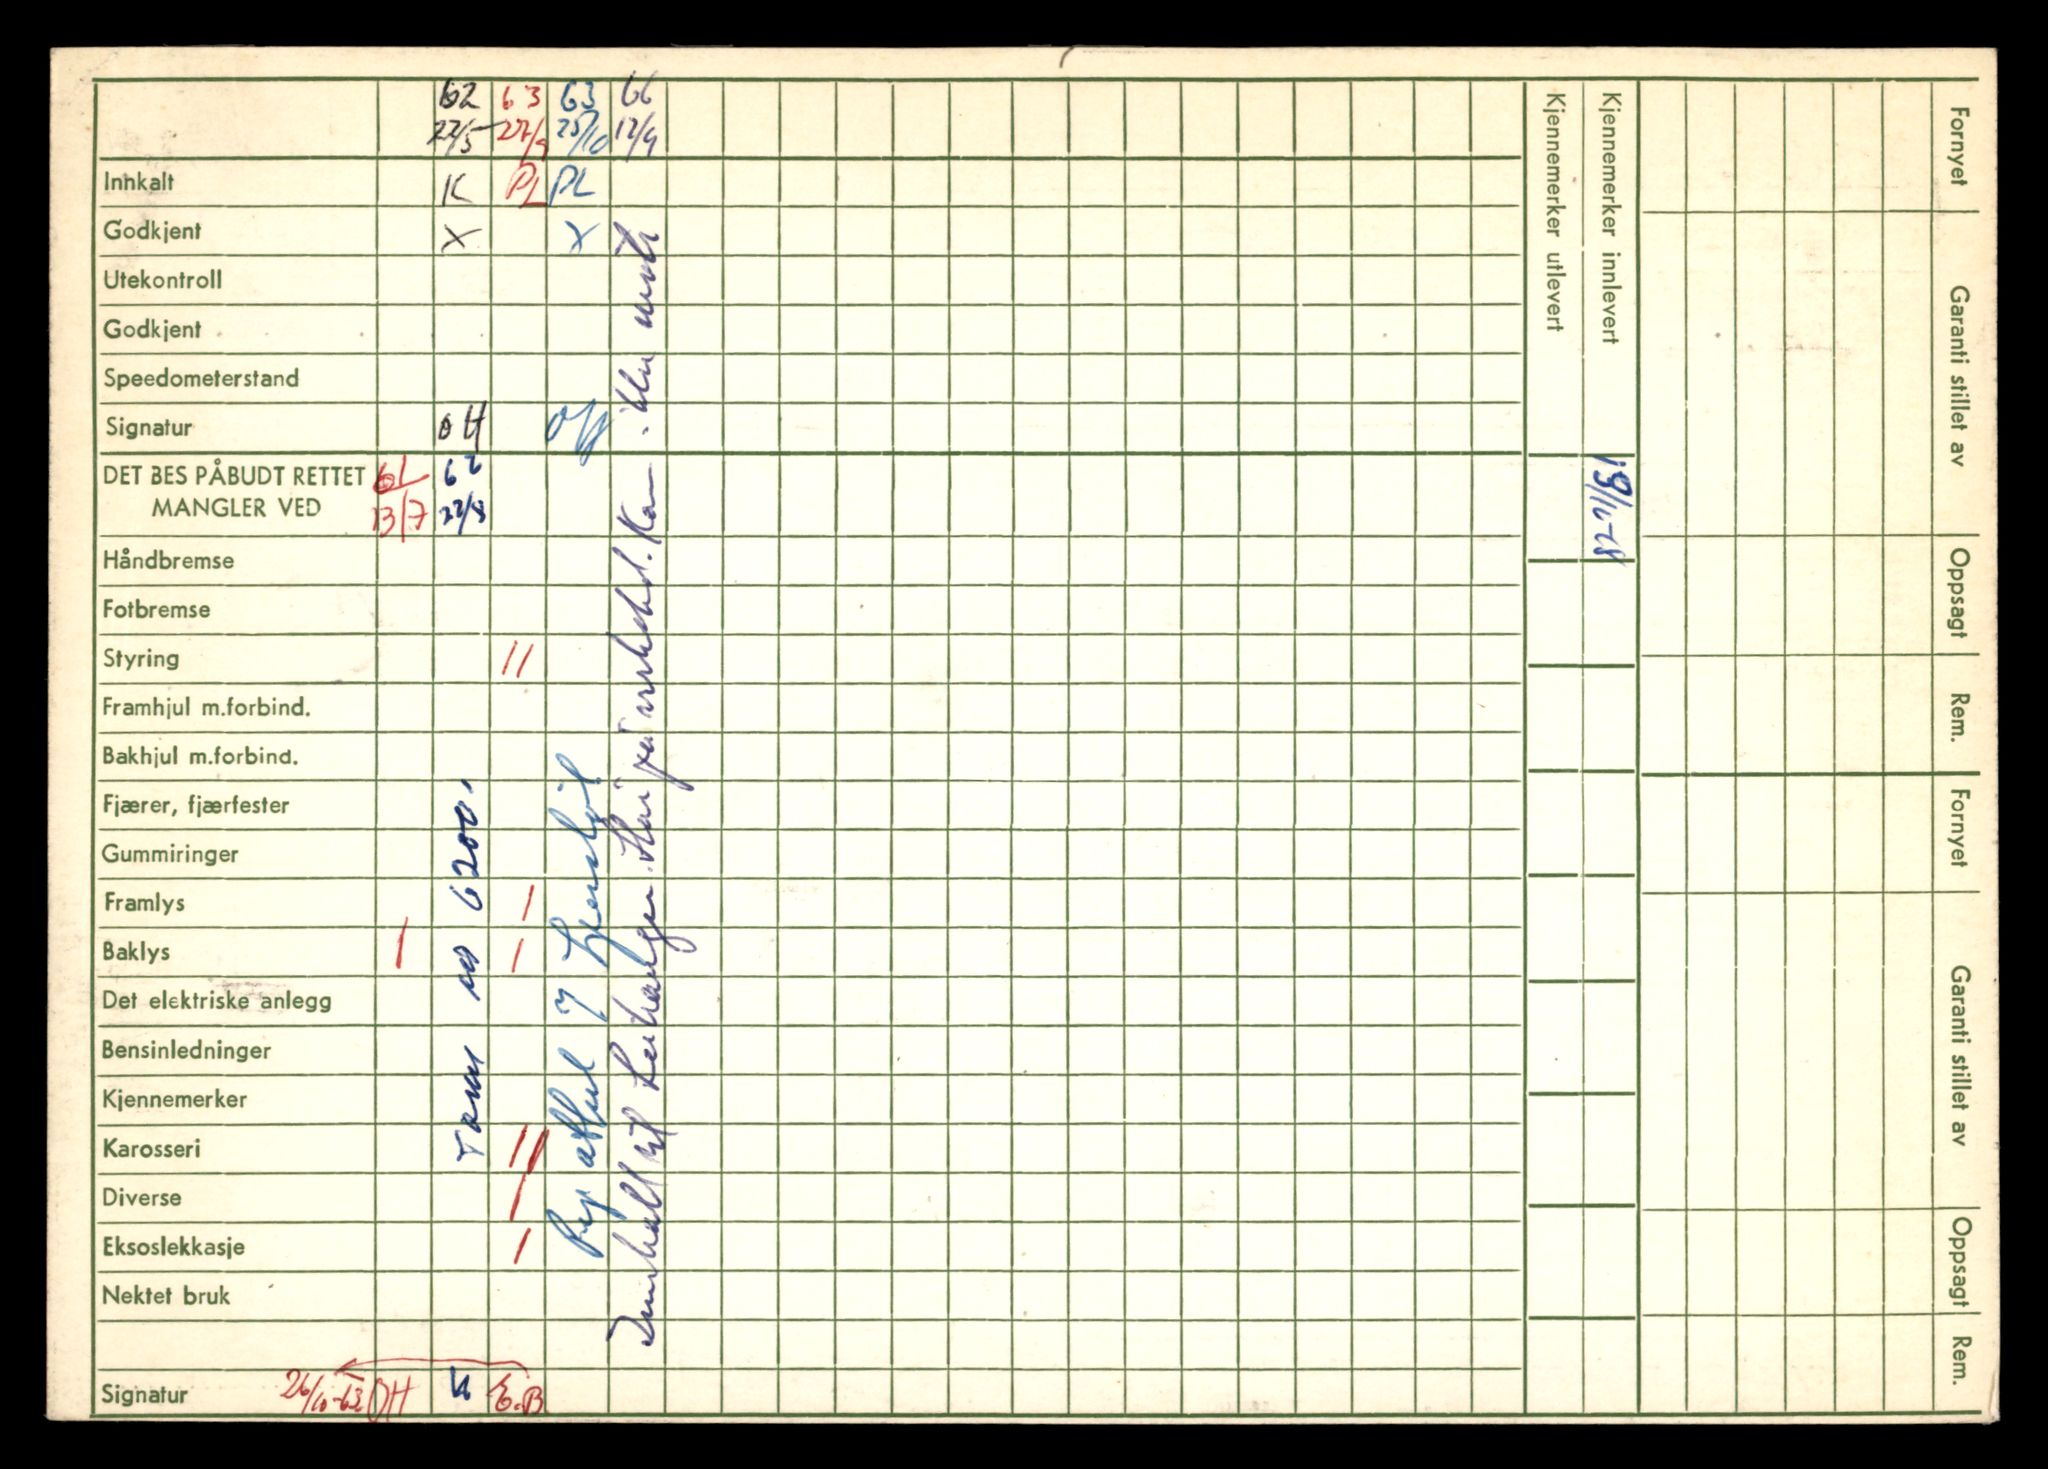 62 63 63 66
22/5 27/9 25/10 12/9
Innkalt K PL PL
Godkjent X X
Utekontroll
Godkjent
Speedometerstand
Signatur OH
DET BES PÅBUDT RETTET 62
MANGLER VED 13/7 22/8
Håndbremse
Fotbremse
Styring 11
Framhjul m.forbind.
Bakhjul m.forbind.
Fjærer, fjærfester
Gummiringer
Framlys 1
Baklys 1 1
Det elektriske anlegg
Bensinledninger
Kjennemerker
Karosseri 11
Diverse 1
Eksoslekkasje 1
Nektet bruk
Signatur 26/10-63 OH E.B
6200.
Kjennemerker utlevert
Kjennemerker innlevert
Fornyet
Garanti stillet av
Oppsagt
Rem.
Fornyet
Garanti stillet av
Oppsagt
Rem.